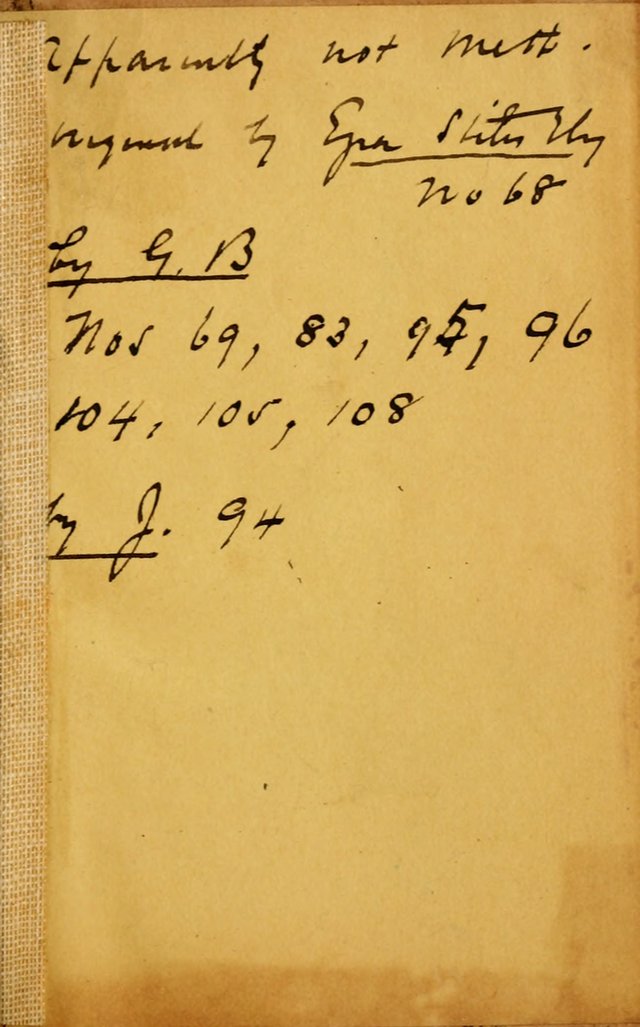 Apparently not Meth.
original by Ezra Stiles Ely
No 68
by G. B
Nos 69, 83, 95, 96
104, 105, 108
by J. 94